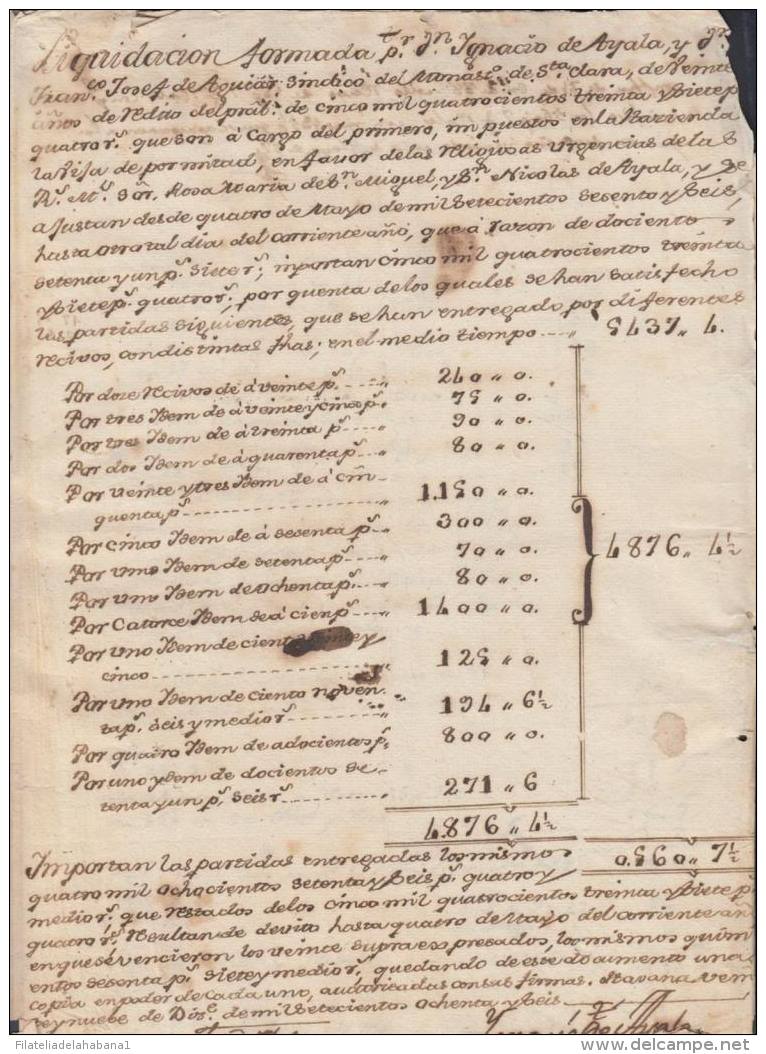 Liquidacion formada pr. Dn. Ygnacio de Ayala, y Dn.
Franco. Josef de Aguiar Sindico del Monasto. de Sta. Clara, de veinte
años de redito del pral. de cinco mil quatrocientos treinta y siete p
quatro rs. que son á cargo del primero, impuestos en la Hazienda
la Sija de por mitad, en favor de las religiosas urgencias de la S
Ra. Me. Sor. Rosa Maria de Sn. Miguel, y Sn. Nicolas de Ayala, y se
ajustan desde quatro de Mayo de mil setecientos sesenta y seis,
hasta otro tal dia del corriente año, que á razon de dociento
setenta y un ps. siete rs; inportan cinco mil quatrocientos treinta
y siete ps. quatro rs., por quenta de los quales se han satisfecho
las partidas siguientes, que se han entregado por diferentes
recivos, con distintas fhas; en el medio tiempo ---- " 5437 " 4.
Por doze recivos de á veinte ps. ---- " 240 " 0.
Por tres Ydem de á veinte y cinco ps. 75 " 0.
Por tres Ydem de á treinta ps. ---- " 90 " 0.
Por dos Ydem de á quarenta ps. ---- " 80 " 0.
Por veinte y tres Ydem de á cin
quenta ps. ---- " 1.150 " 0.
Por cinco Ydem de á sesenta ps. ---- " 300 " 0. 4876 " 4½
Por uno Ydem de setenta ps. ---- " 70 " 0.
Por uno Ydem de ochenta ps. ---- " 80 " 0.
Por Catorce Ydem de á cien ps. ---- " 1400 " 0.
Por uno Ydem de ciento veinte y
cinco ---- " 125 " 0.
Por uno Ydem de ciento noven-
ta ps. seis y medio rs. ---- " 194 " 6½
Por quatro Ydem de a docientos ps. 800 " 0.
Por uno ydem de docientos se-
tenta y un ps. seis rs. ---- " 271 " 6
4.876 " 4½
0.560 " 7½
Importan las partidas entregadas los mismos
quatro mil ochocientos setenta y seis ps. quatro y
medio rs. que restados de los cinco mil quatrocientos treinta y siete p
quatro rs. resultan de devito hasta quatro de Mayo del corriente añ
en que se vencieron los veinte supra expresados, los mismos quini
entos sesenta ps. siete y medio rs., quedando de este documento una
copia en poder de cada uno, autoritadas con sus firmas. Havana vein
te y nueve de Dize. de mil setecientos ochenta y seis
Filateliadelahabana1
delcampe.net